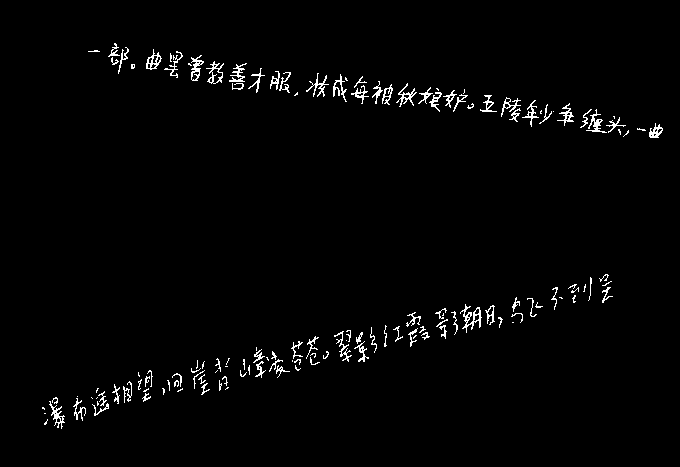 一部。曲罢曾教善才服,妆成每被秋娘妒。五陵年少争缠头,一曲
瀑布遥相望,回崖沓嶂凌苍苍。翠影红霞影朝日,鸟飞不到吴